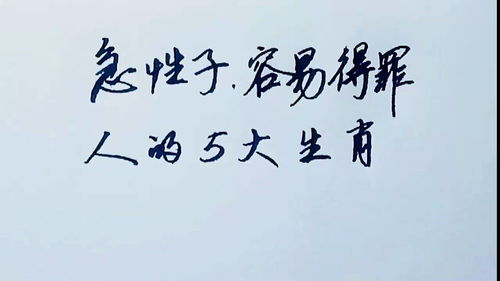 急性子.容易得罪
人的5大生肖